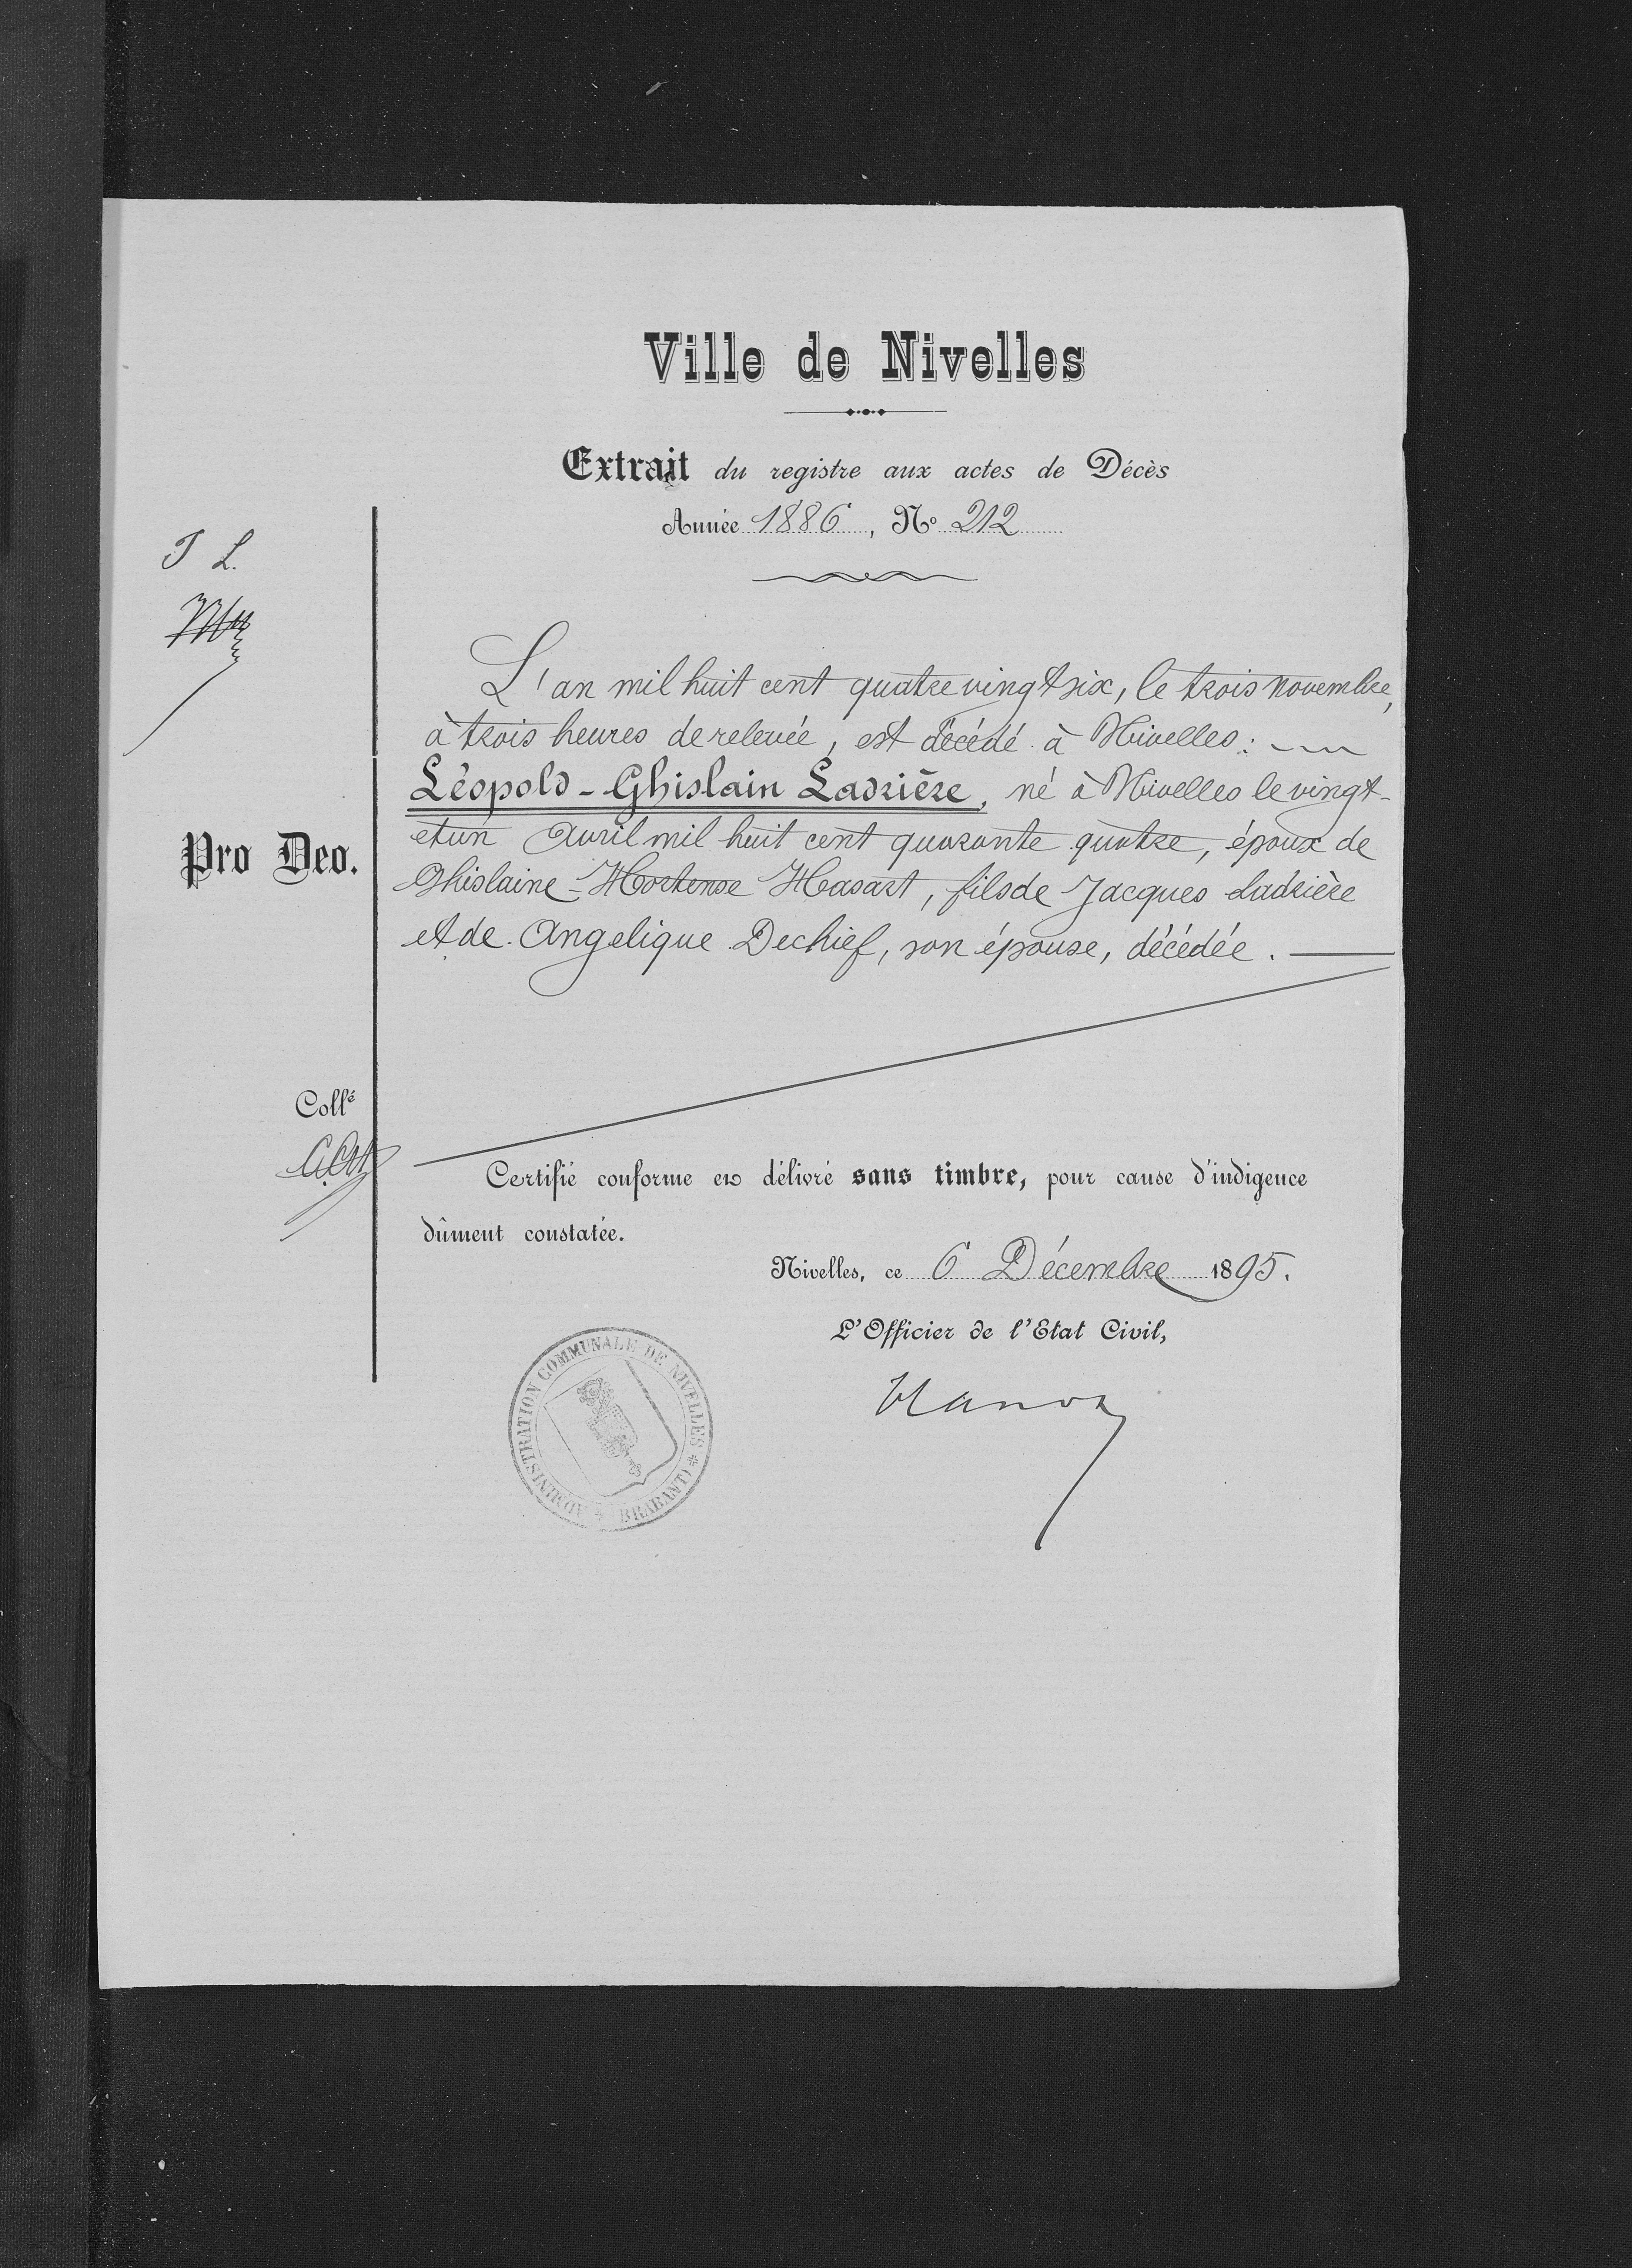 Ville de Nivelles
Extrait du registre aux actes de Décès
Année 1886, No 212
J L.
L'an mil huit cent quatre vingt six, le trois novembre,
à trois heures de relevée, est décédé à Nivelles :
Léopold-Ghislain Ladrière, né à Nivelles le vingt-
et un Avril mil huit cent quarante quatre, époux de
Pro Deo.
Ghislaine-Hortense Hasart, fils de Jacques Ladrière
et de Angelique Dechief, son épouse, décédée.
Collé
Certifié conforme et délivré sans timbre, pour cause d'indigence
dûment constatée.
Nivelles, ce 6 Décembre 1895.
L'Officier de l'Etat Civil,
ADMINISTRATION COMMUNALE DE NIVELLES * (BRABANT) *